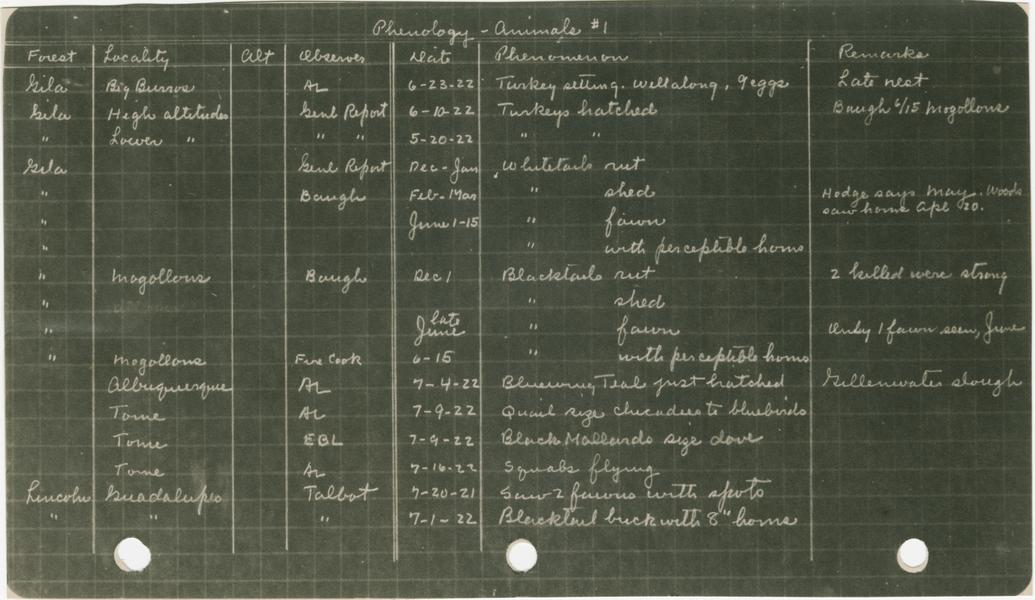 Phenology - Animals #1
Forest Locality Alt Observer Date Phenomenon Remarks
Gila Big Burros AL 6-23-22 Turkey setting. well along, 9 eggs Late nest
Gila High altitudes Genl Report 6-10-22 Turkeys hatched Baugh 6/15 Mogollons
" Lower " " " 5-20-22 " "
Gila Genl Report Dec-Jan Whitetails rut
" Baugh Feb-Mar " shed Hodge says May. Woods
saw horns Apl 20.
" June 1-15 " fawn
" " with perceptible horns
" Mogollons Baugh Dec 1 Blacktails rut 2 killed were strong
" " shed
" late
June " fawn Only 1 fawn seen, June
" Mogollons Fire Cook 6-15 " with perceptible horns
Albuquerque AL 7-4-22 Bluewing Teal just hatched Gillenwater slough
Tome AL 7-9-22 Quail size chicadees to bluebirds
Tome EBL 7-9-22 Black Mallards size dove
Tome AL 7-16-22 Squabs flying
Lincoln Guadalupes Talbot 7-20-21 Saw 2 fawns with spots
" " " 7-1-22 Blacktail buck with 8" horns